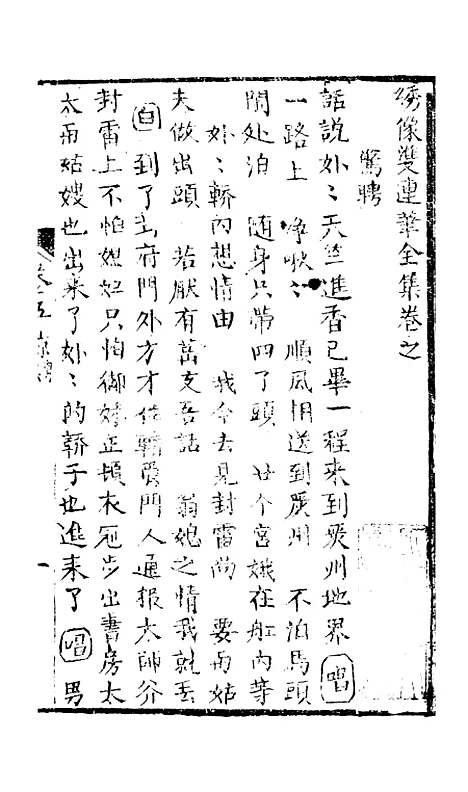 绣像雙連筆全集卷之
驚聘
話說処〻天竺進香已畢一程來到 州地界 唱
一路上 净啾〻 順風相送到 州 不泊馬頭
閒处泊 随身只帶四丫頭 廿个宮娥在舡内等
処〻轎内想情由 我今去見封雷尚 要雨姑
夫做出頭 若厭有萬支吾話 翁媳之情我就丢
白 到了 府門外方才住轎 門人通报太師爷
封雷上不怕媒妁只怕御 正頓衣冠步出書房太
太雨姑嫂也出來了処〻的轎子也進来了 唱 男
卷之五 驚聘 一